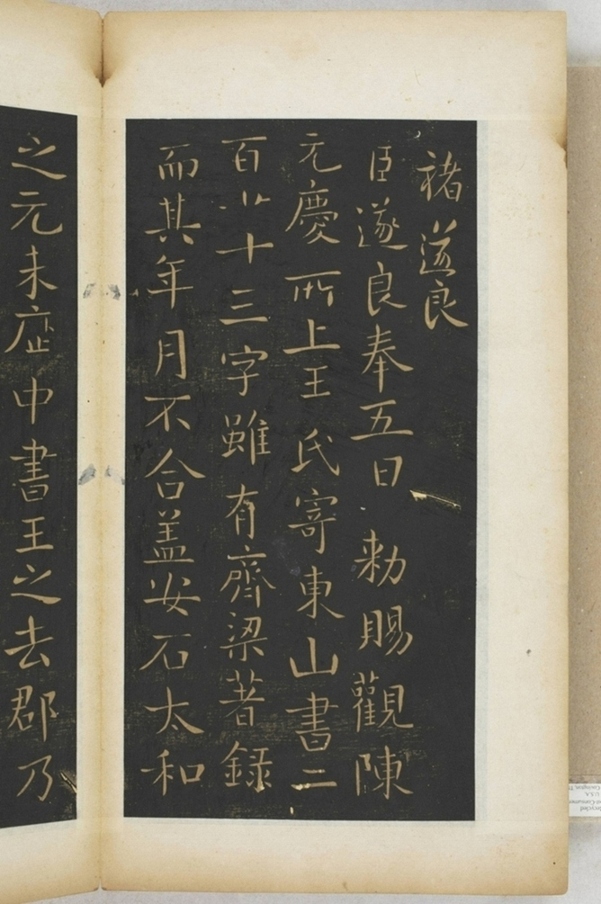 褚遂良
臣遂良奉五日勑賜觀陳
元慶所上王氏寄東山書二
百廿十三字雖有齊梁著錄
而其年月不合盖安石太和
之元未歷中書王之去郡乃